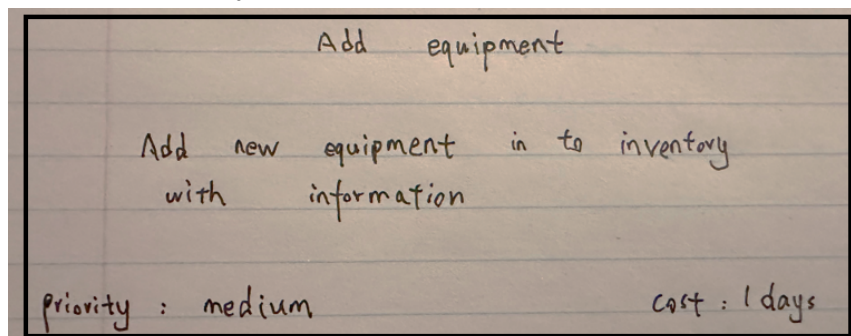 Add equipment
Add new equipment in to inventory
with information
priority : medium
cost : 1 days